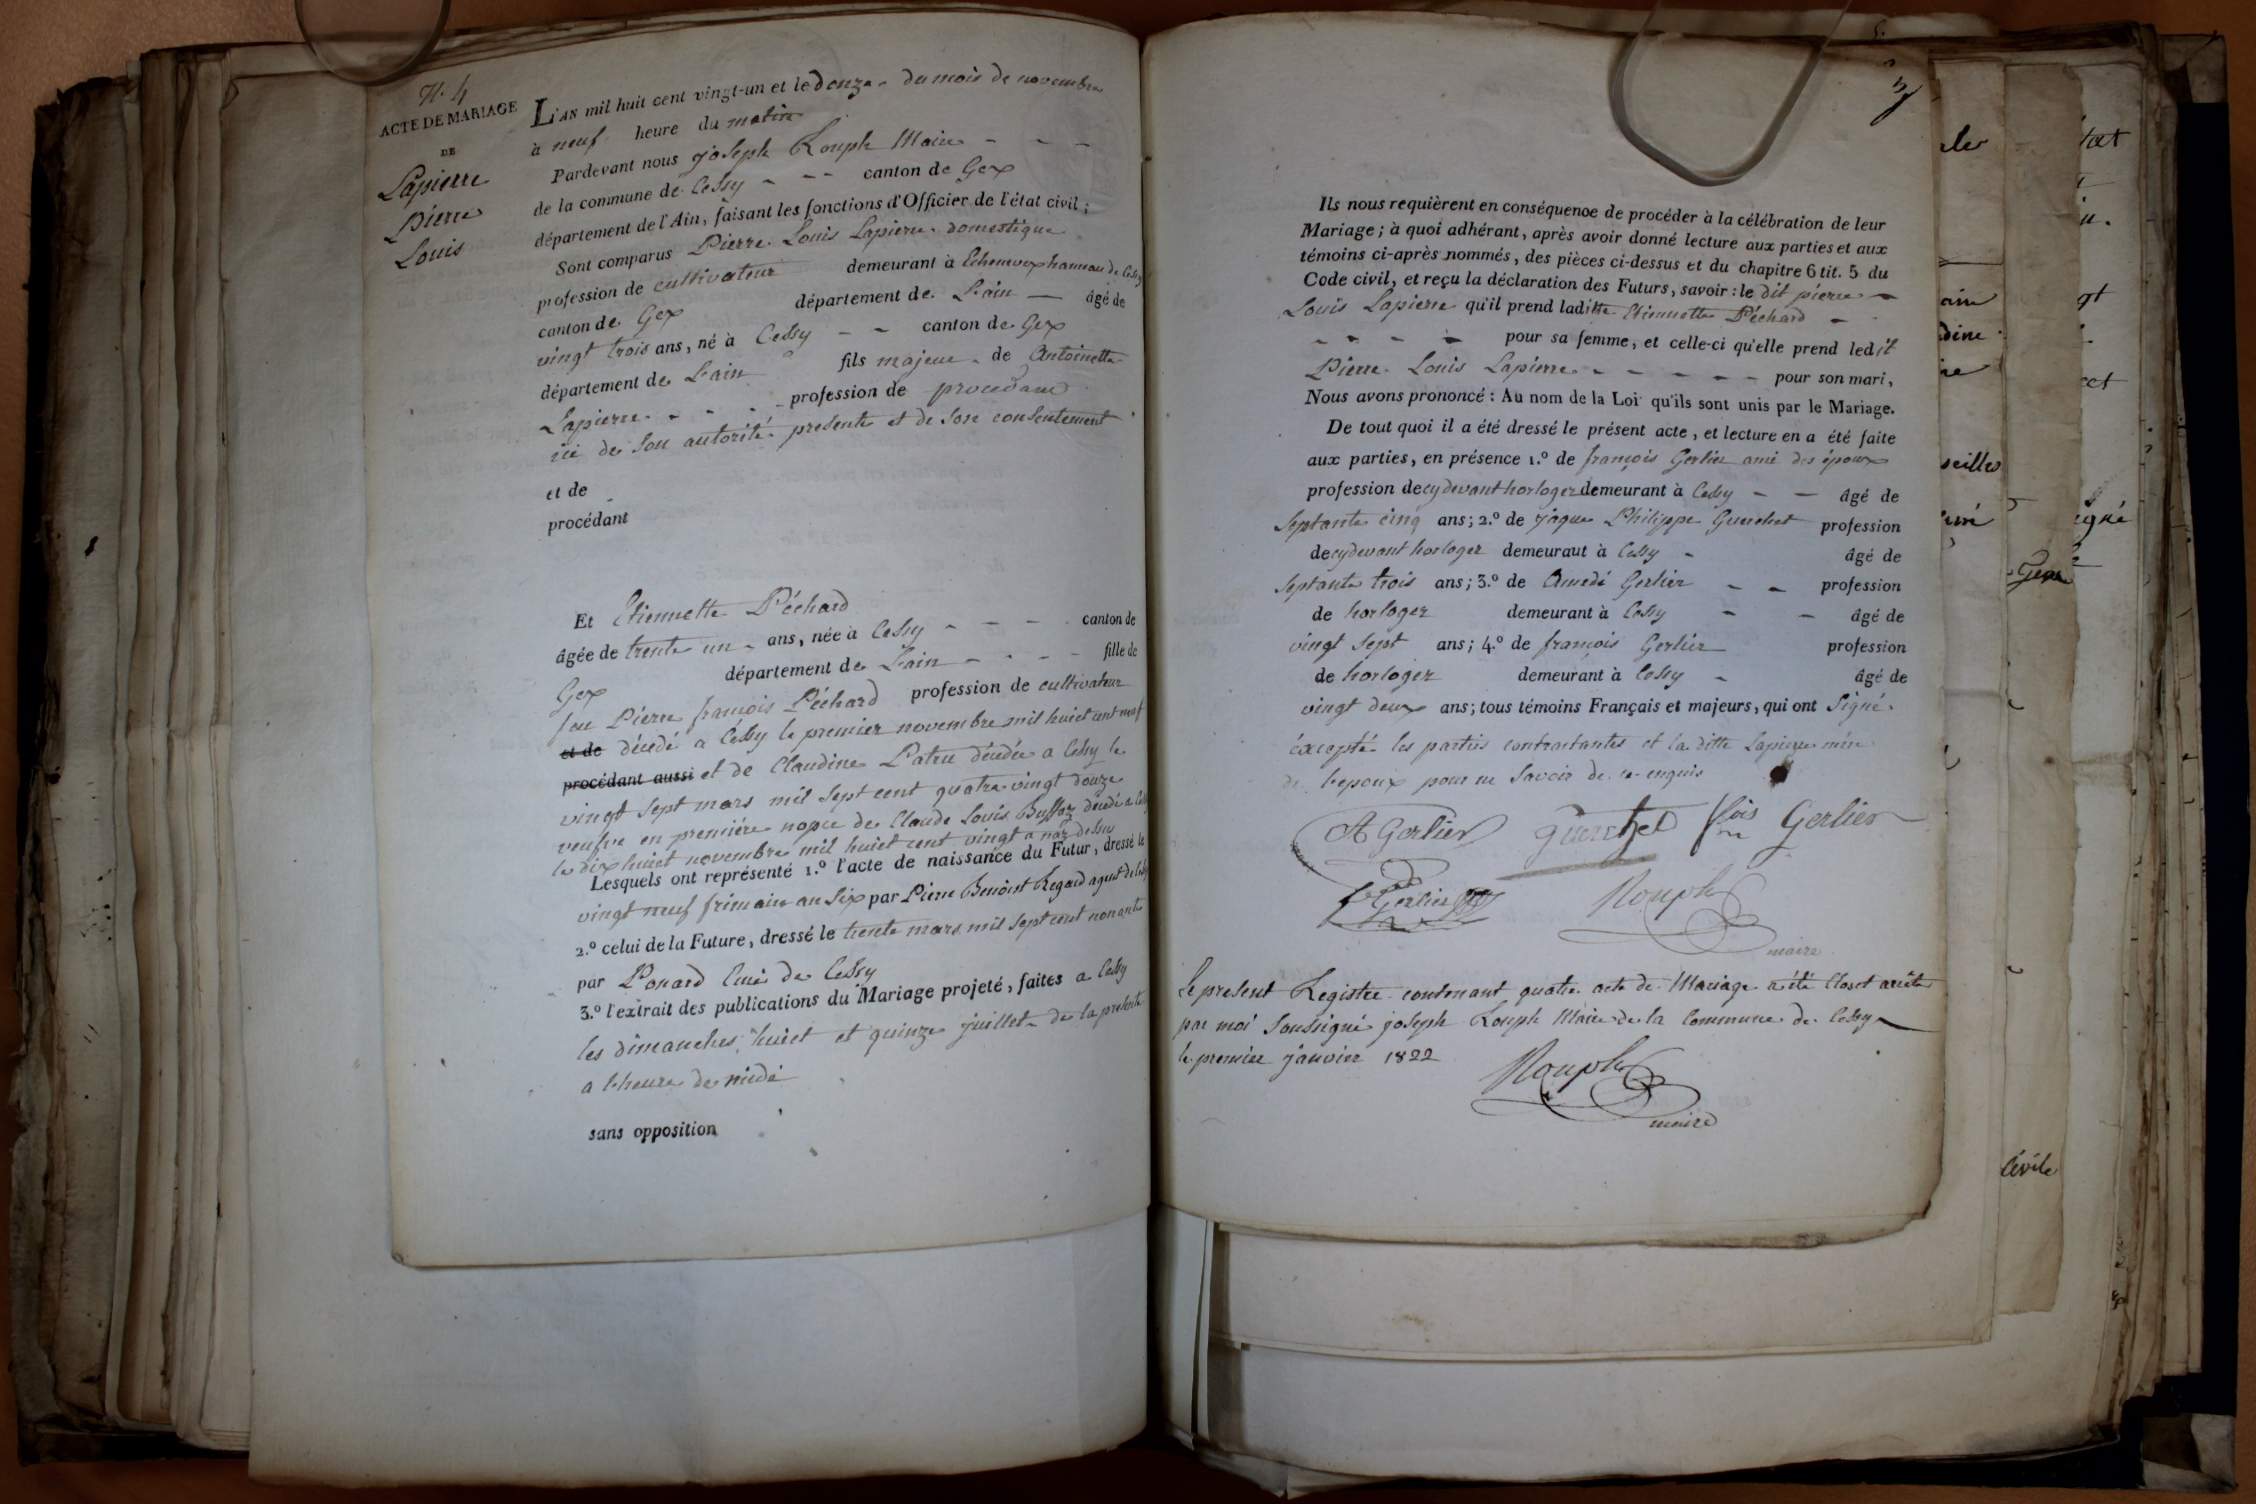 N.º 4
ACTE DE MARIAGE
DE
Lapierre
Pierre
Louis
L'AN mil huit cent vingt-un et le Douze du mois de novembre
à neuf heure du matin
Pardevant nous joseph Rouph Maire
de la commune de Cessy canton de Gex
département de l'Ain, faisant les fonctions d'Officier de l'état civil;
Sont comparus Pierre Louis Lapierre domestique
profession de cultivateur demeurant à Echenevex hameau de Cessy
canton de Gex département de L'ain âgé de
vingt trois ans, né à Cessy canton de Gex
département de L'ain fils majeur de Antoinette
Lapierre profession de procédant
ici de son autorité presente et de son consentement
et de
procédant
Et Etiennette Péchard
âgée de trente un ans, née à Cessy canton de
Gex département de L'ain fille de
feu Pierre françois Péchard profession de cultivateur
et de décédé a Cessy le premier novembre mil huict cent neuf
procédant aussi et de Claudine Patru décédée a Cessy le
vingt sept mars mil sept cent quatre vingt douze
veufve en première nopce de Claude Louis Buffaz décédé a
le dix huict novembre mil huict cent vingt a naz dessus
Lesquels ont représenté 1.º l'acte de naissance du Futur, dressé le
vingt neuf frimaire an six par Pierre Benoist Regard agent de Cessy
2.º celui de la Future, dressé le trente mars mil sept cent nonante
par Ponard Curé de Cessy
3.º l'extrait des publications du Mariage projeté, faites a Cessy
les dimanches huict et quinze juillet de la presente
a l'heure de midi
sans opposition
Ils nous requièrent en conséquence de procéder à la célébration de leur
Mariage; à quoi adhérant, après avoir donné lecture aux parties et aux
témoins ci-après nommés, des pièces ci-dessus et du chapitre 6 tit. 5 du
Code civil, et reçu la déclaration des Futurs, savoir: le dit pierre
Louis Lapierre qu'il prend laditte Etiennette Péchard
pour sa femme, et celle-ci qu'elle prend ledit
Pierre Louis Lapierre pour son mari,
Nous avons prononcé: Au nom de la Loi qu'ils sont unis par le Mariage.
De tout quoi il a été dressé le présent acte, et lecture en a été faite
aux parties, en présence 1.º de françois Gerlier ami des époux
profession de cydevant horloger demeurant à Cessy âgé de
septante cinq ans; 2.º de jaque Philippe Guerchet profession
de cydevant horloger demeuraut à Cessy âgé de
septante trois ans; 3.º de Amedé Gerlier profession
de horloger demeurant à Cessy âgé de
vingt sept ans; 4.º de françois Gerlier profession
de horloger demeurant à Cessy âgé de
vingt deux ans; tous témoins Français et majeurs, qui ont Signé.
éxcepté les parties contractantes et la ditte Lapierre mère
de l'epoux pour ne savoir de ce enquis
A Gerlier Guerchet fçois Gerlier
f Gerlier Rouph
maire
Le present Registre contenant quatre acte de Mariage a été Closet arrêté
par moi Soussigné joseph Rouph Maire de la Commune de Cessy
le premier janvier 1822
Rouph
maire
civile